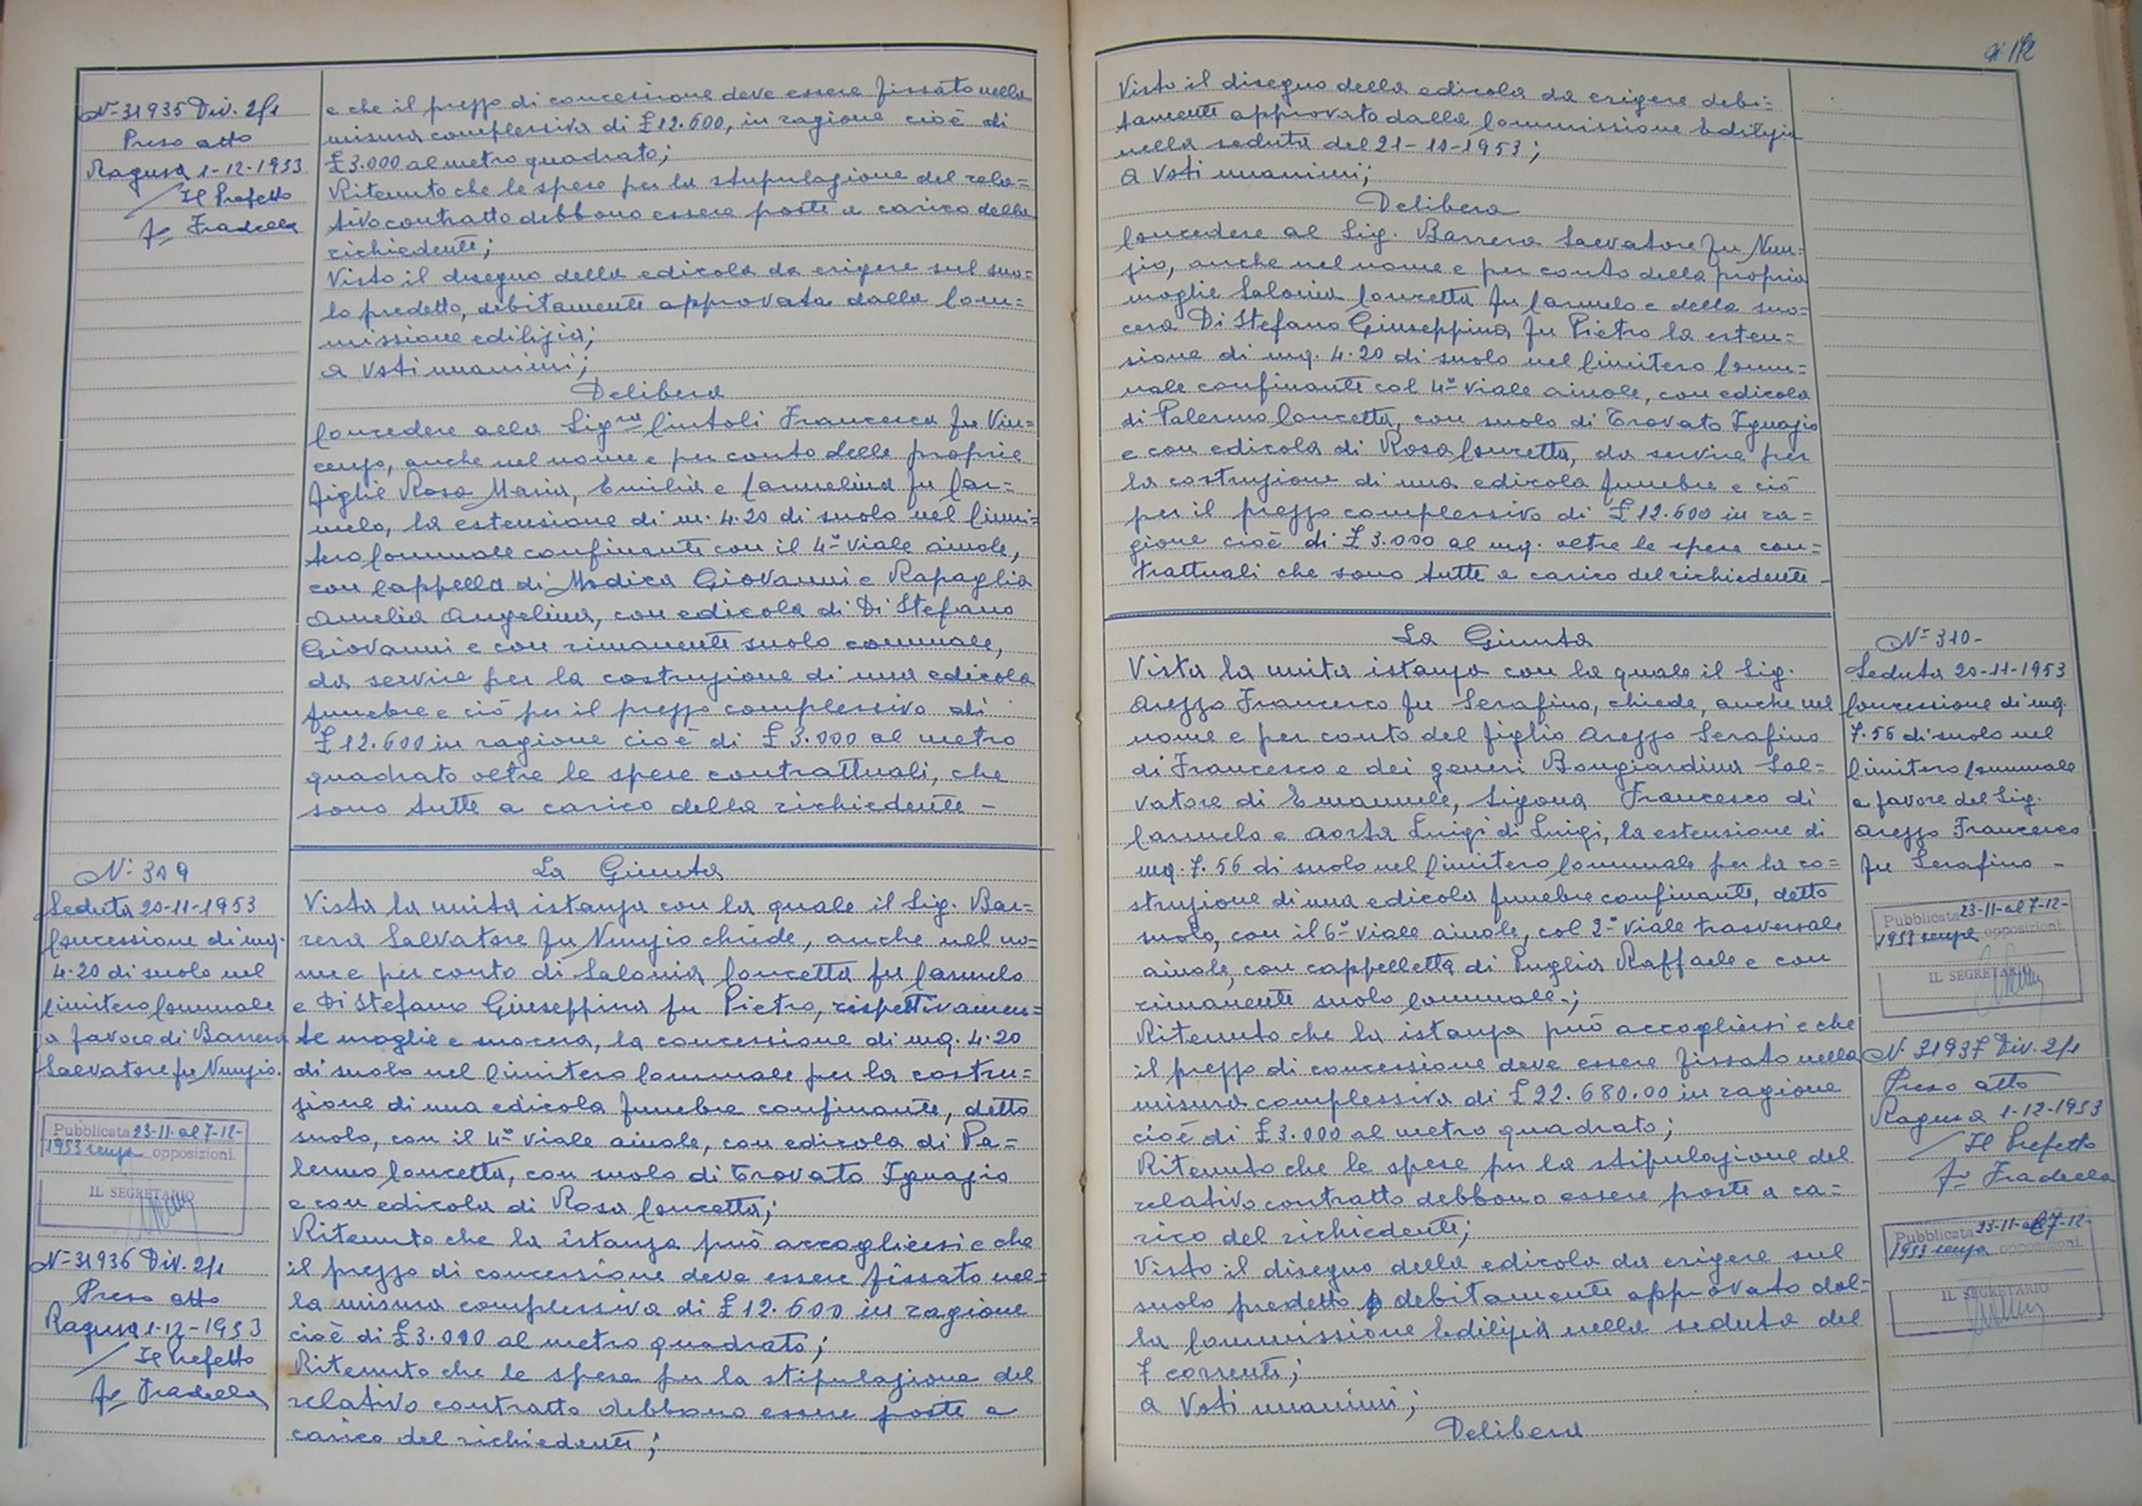 N. 31935 Div. 2/1
Preso atto
Ragusa 1-12-1953
Il Prefetto
Fto Fradella
e che il prezzo di concessione deve essere fissato nella
misura complessiva di £ 12.600, in ragione cioè di
£ 3.000 al metro quadrato;
Ritenuto che le spese per la stupulazione del rela=
tivo contratto debbono essere poste a carico della
richiedente;
Visto il disegno della edicola da erigere sul suo=
lo predetto, debitamente approvata dalla Com=
missione edilizia;
a voti unanimi;
Delibera
Concedere alla Sig.ra Cintoli Francesca fu Vin=
cenzo, anche nel nome e per conto delle proprie
figlie Rosa Maria, Emilia e Carmelina fu Car=
melo, la estensione di m. 4.20 di suolo nel Cimi=
tero Comunale confinante con il 4° viale aiuole,
con Cappella di Modica Giovanni e Rapaglia
Amelia Angelina, con edicola di Di Stefano
Giovanni e con rimanente suolo comunale,
da servire per la costruzione di una edicola
funebre e ciò per il prezzo complessivo di
£ 12.600 in ragione cioè di £ 3.000 al metro
quadrato oltre le spese contrattuali, che
sono tutte a carico della richiedente -
N. 309
Seduta 20-11-1953
Concessione di mq.
4.20 di suolo nel
Cimitero Comunale
a favore di Barrera
Salvatore fu Nunzio.
Pubblicata 23-11- al 7-12-
1953 senza opposizioni.
IL SEGRETARIO
N. 31936 Div. 2/1
Preso atto
Ragusa 1-12-1953
Il Prefetto
Fto Fradella
La Giunta
Vista la unita istanza con la quale il Sig. Bar=
rera Salvatore fu Nunzio chiede, anche nel no=
me e per conto di Salonia Concetta fu Carmelo
e Di Stefano Giuseppina fu Pietro, rispettivamen=
te moglie e suocera, la concessione di mq. 4.20
di suolo nel Cimitero Comunale per la costru=
zione di una edicola funebre confinante, detto
suolo, con il 4° viale aiuole, con edicola di Pa=
lermo Concetta, con suolo di Trovato Ignazio
e con edicola di Rosa Concetta;
Ritenuto che la istanza può accogliersi e che
il prezzo di concessione deve essere fissato nel=
la misura complessiva di £ 12.600 in ragione
cioè di £ 3.000 al metro quadrato;
Ritenuto che le spese per la stipulazione del
relativo contratto debbono essere poste a
carico del richiedente;
Visto il disegno della edicola da erigere debi=
tamente approvato dalla Commissione Edilizia
nella seduta del 21-10-1953;
a voti unanimi;
Delibera
Concedere al Sig. Barrera Salvatore fu Nun=
zio, anche nel nome e per conto della propria
moglie Salonia Concetta fu Carmelo e della suo=
cera Di Stefano Giuseppina fu Pietro la esten=
sione di mq. 4.20 di suolo nel Cimitero Comu=
nale confinante col 4° viale aiuole, con edicola
di Palermo Concetta, con suolo di Trovato Ignazio
e con edicola di Rosa Concetta, da servire per
la costruzione di una edicola funebre e ciò
per il prezzo complessivo di £ 12.600 in ra=
gione cioè di £ 3.000 al mq. oltre le spese con=
trattuali che sono tutte a carico del richiedente -
La Giunta
Vista la unita istanza con la quale il Sig.
Arezzo Francesco fu Serafino, chiede, anche nel
nome e per conto del figlio Arezzo Serafino
di Francesco e dei generi Bongiardina Sal=
vatore di Emanuele, Sigona Francesco di
Carmelo e Aorta Luigi di Luigi, la estensione di
mq. 7.56 di suolo nel Cimitero Comunale per la co=
struzione di una edicola funebre confinante, detto
suolo, con il 6° viale aiuole, col 2° viale trasversale
aiuole, con cappelletta di Puglia Raffaele e con
rimanente suolo Comunale;
Ritenuto che la istanza può accogliersi e che
il prezzo di concessione deve essere fissato nella
misura complessiva di £ 22.680.00 in ragione
cioè di £ 3.000 al metro quadrato;
Ritenuto che le spese per la stipulazione del
relativo contratto debbono essere poste a ca=
rico del richiedente;
Visto il disegno della edicola da erigere sul
suolo predetto debitamente approvato dal=
la Commissione Edilizia nella seduta del
7 corrente;
a voti unanimi;
Delibera
N. 310-
Seduta 20-11-1953
Concessione di mq.
7.56 di suolo nel
Cimitero Comunale
a favore del Sig.
Arezzo Francesco
fu Serafino -
Pubblicata 23-11- al 7-12-
1953 senza opposizioni.
IL SEGRETARIO
N. 31937 Div. 2/1
Preso atto
Ragusa 1-12-1953
Il Prefetto
Fto Fradella
Pubblicata 23-11- al 7-12-
1953 senza opposizioni.
IL SEGRETARIO